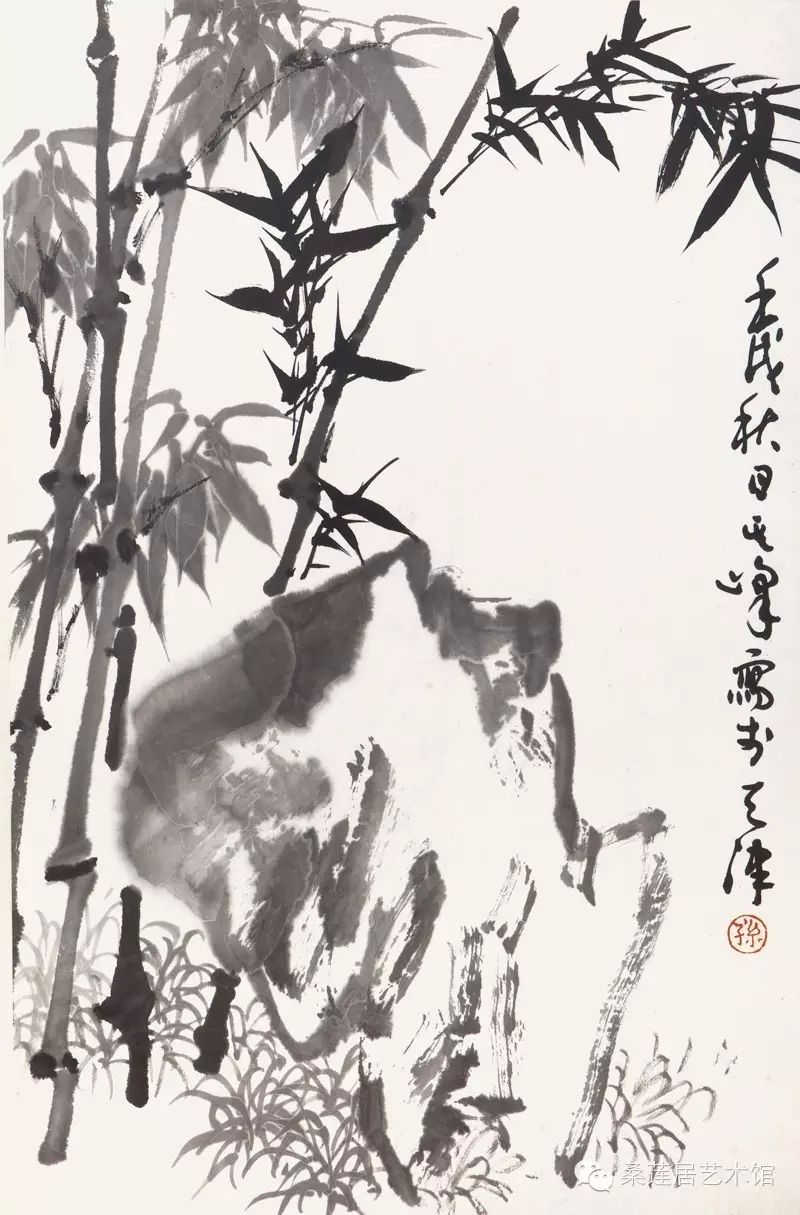 壬戌秋日其峰寫於天津
孫
桑莲居艺术馆